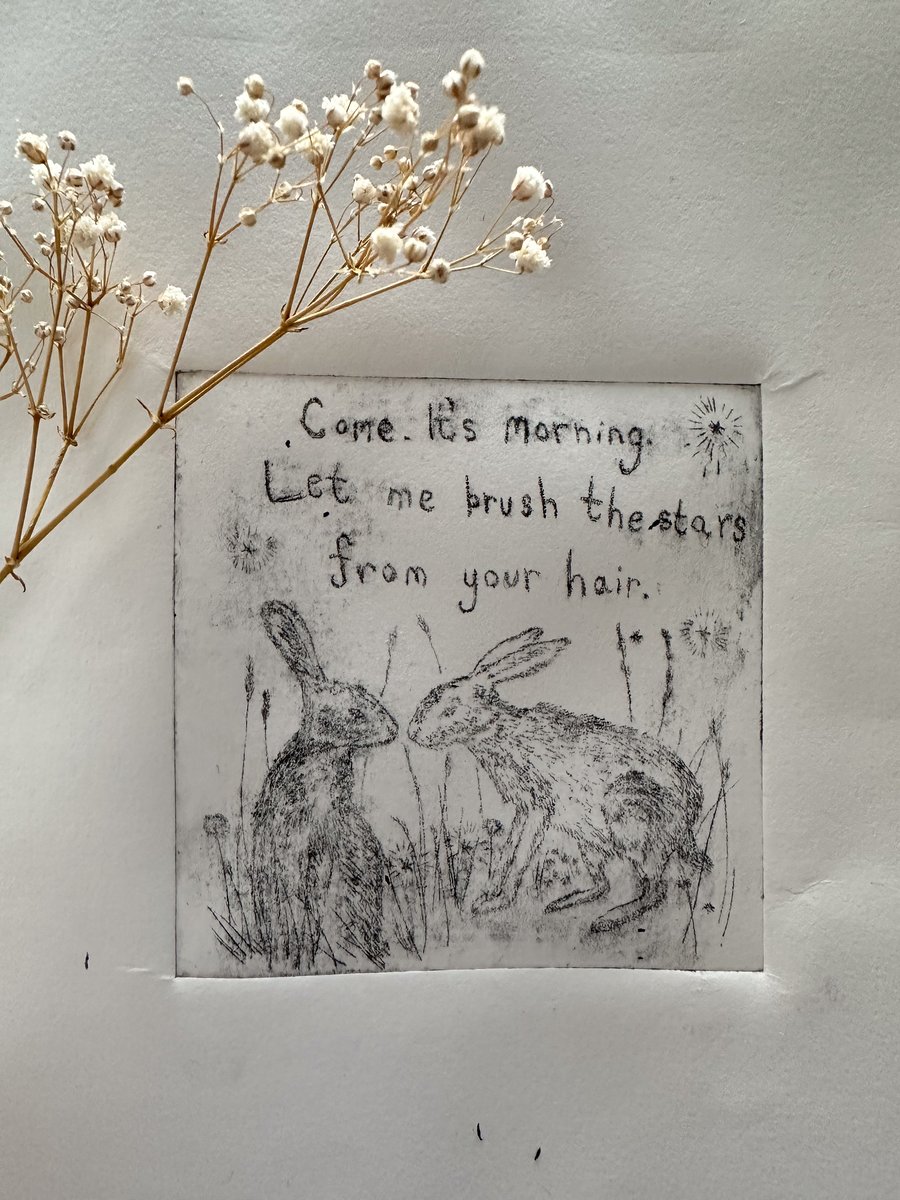 Come. It's morning.
Let me brush the stars
from your hair.